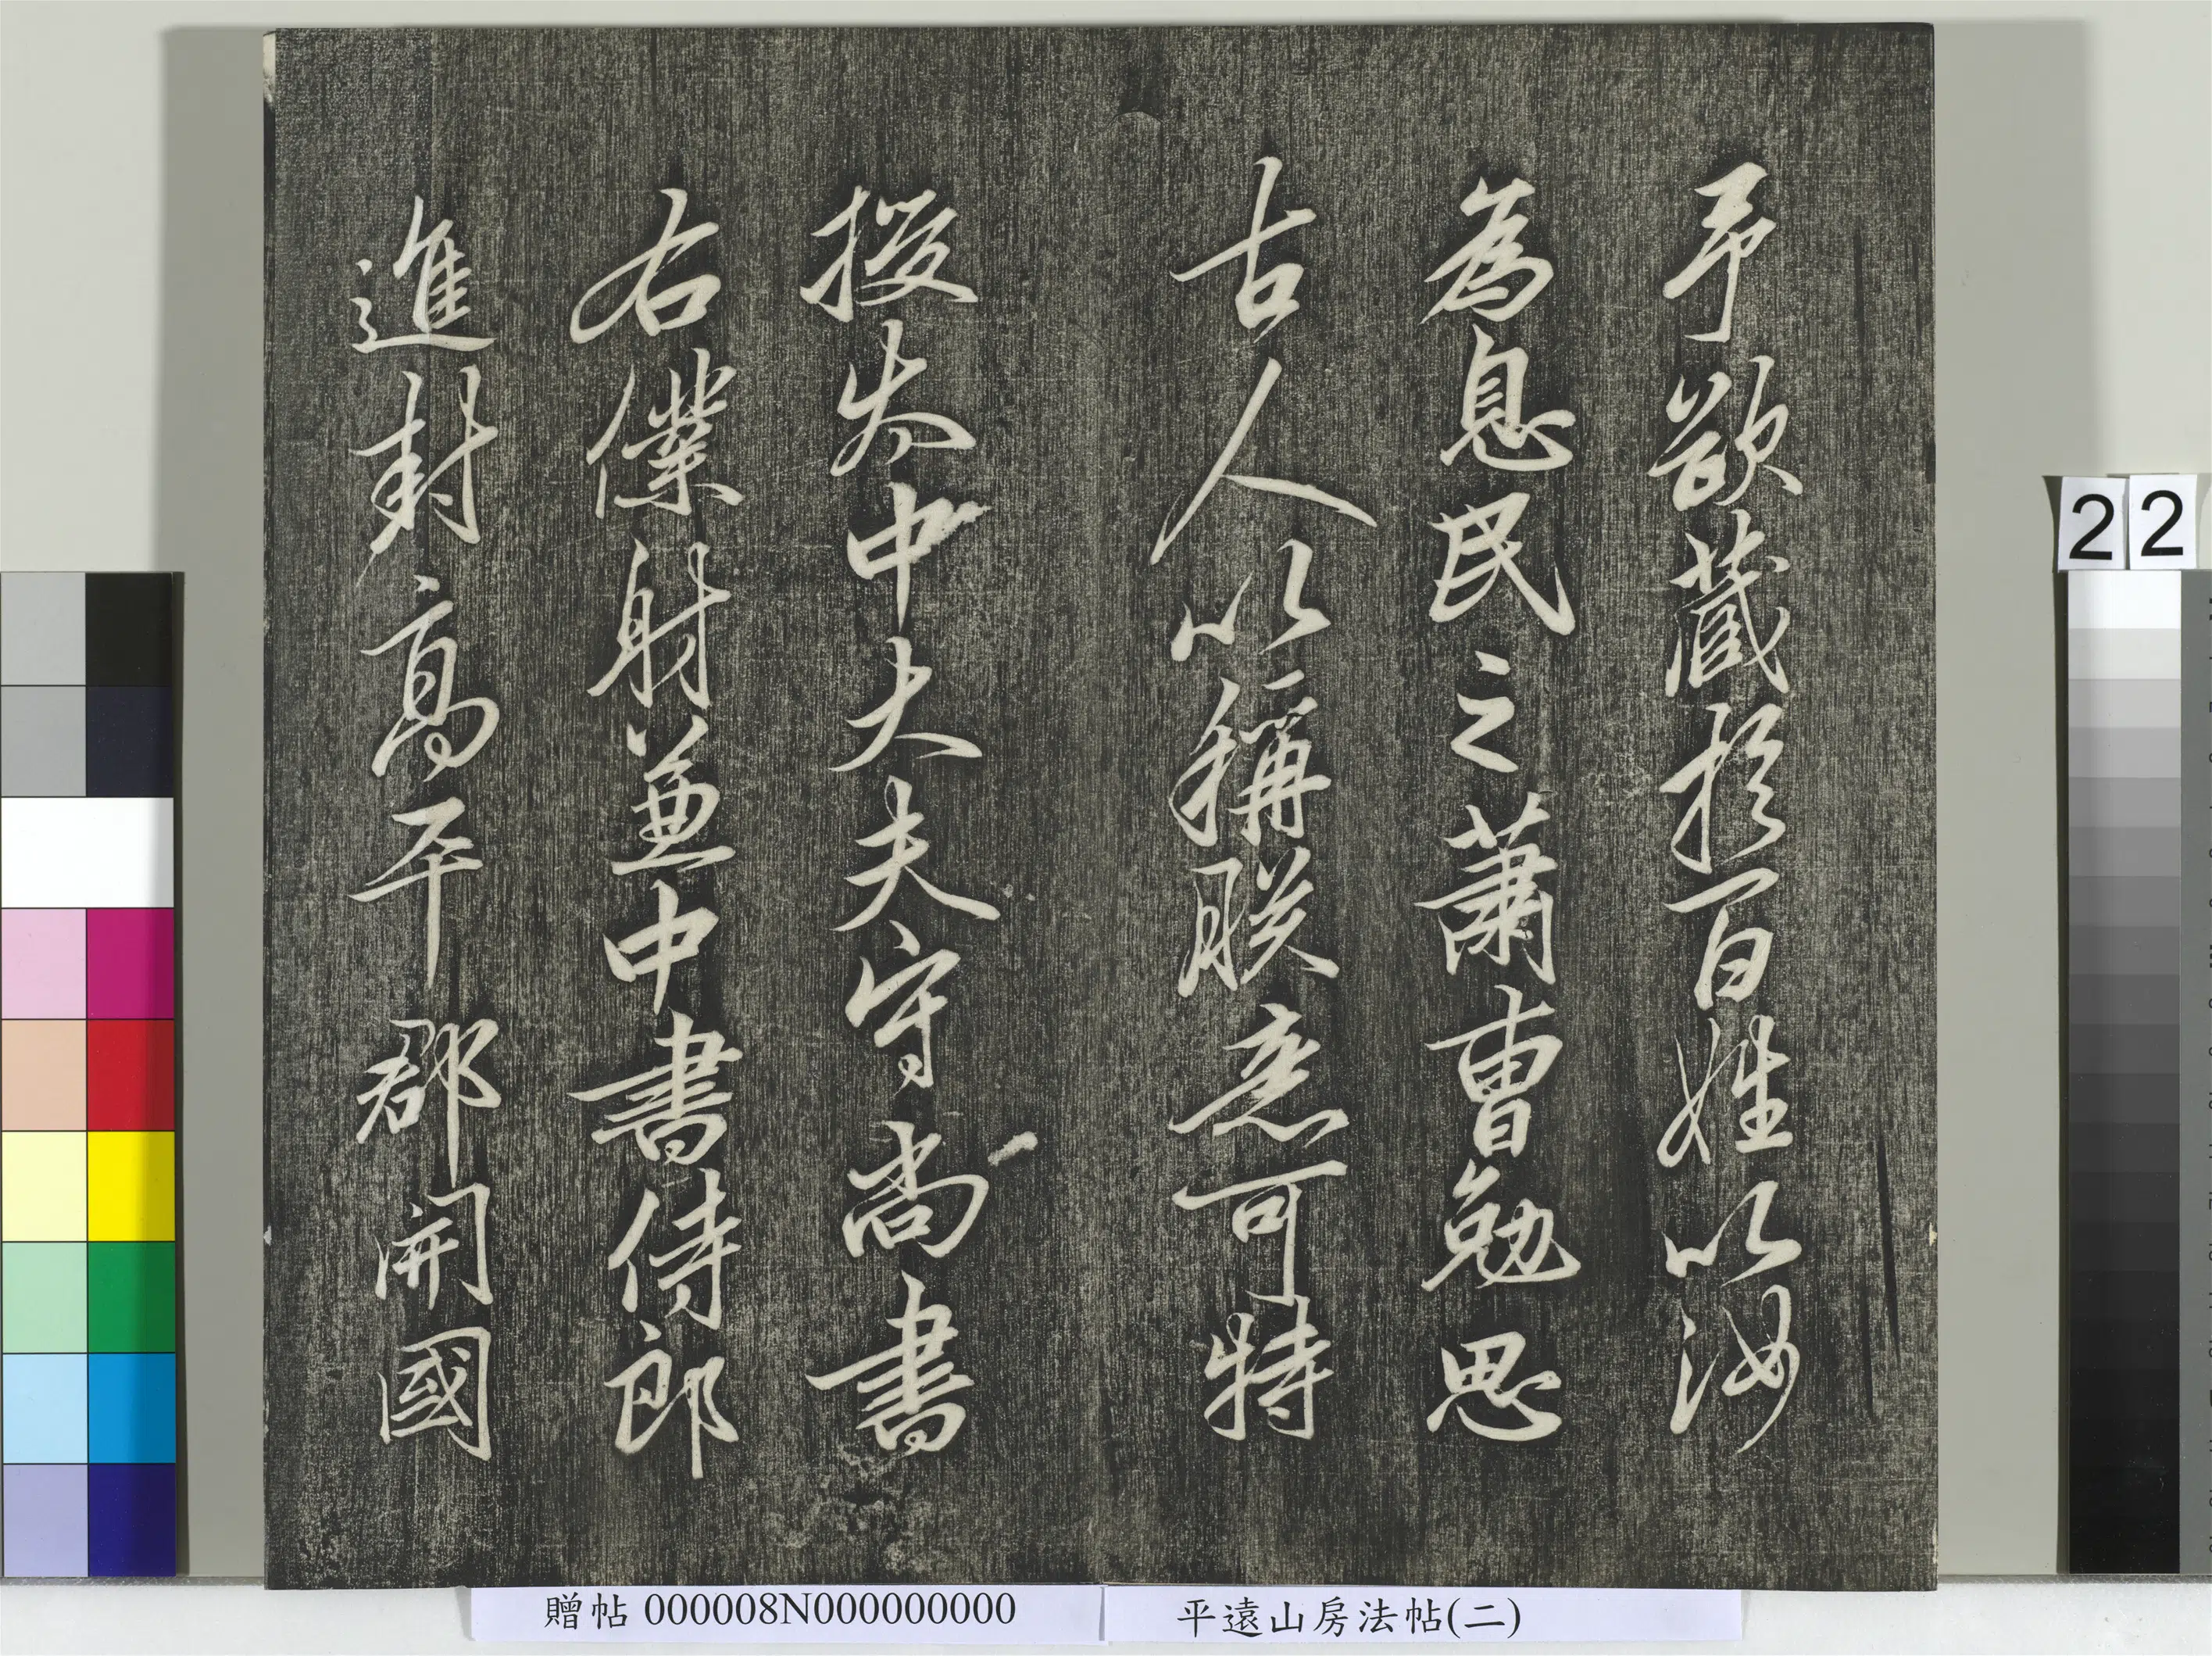 予欲藏於百姓以汝
為息民之蕭曹勉思
古人以稱朕意可特
授太中大夫守尚書
右僕射兼中書侍郎
進封高平郡開國
22
贈帖 000008N000000000
平遠山房法帖(二)